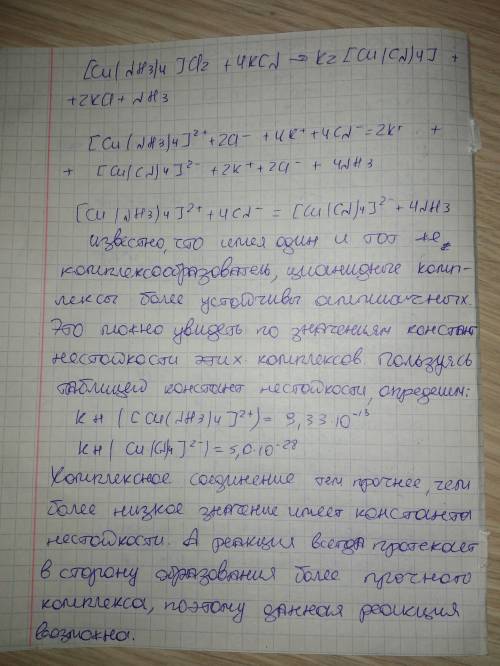 [Cu(NH3)4]Cl2 + 4KCN → K2[Cu(CN)4] +
+2KCl + NH3
[Cu(NH3)4]2+ + 2Cl- + 4K+ + 4CN- = 2K+ +
+ [Cu(CN)4]2- + 2K+ + 2Cl- + 4NH3
[Cu(NH3)4]2+ + 4CN- = [Cu(CN)4]2- + 4NH3
известно, что имея один и тот же
комплексообразователь, цианидные комп-
лексы более устойчивы аммиачных.
Это можно увидеть по значениям констант
нестойкости этих комплексов. Пользуясь
таблицей констант нестойкости, определим:
Kн ([Cu(NH3)4]2+) = 9,33·10-13
Kн ( Cu(CN)4]2-) = 5,0·10-28
Комплексное соединение тем прочнее, чем
более низкое значение имеет константа
нестойкости. А реакция всегда протекает
в сторону образования более прочного
комплекса, поэтому данная реакция
возможна.